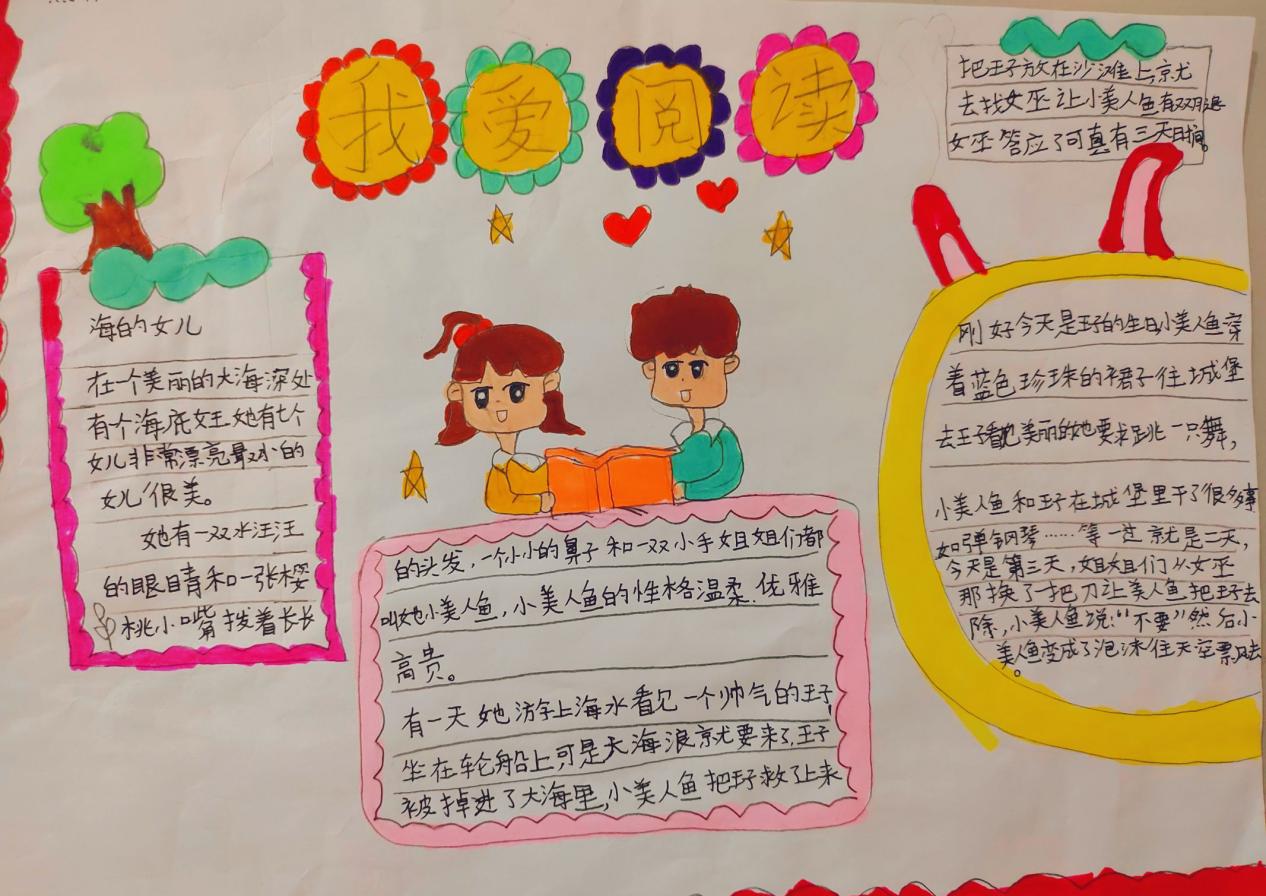 我爱阅读
海的女儿
在一个美丽的大海深处
有个海底女王她有七个
女儿非常漂亮最小的
女儿很美。
她有一双水汪汪
的眼睛和一张樱
桃小嘴 拨着长长
的头发，一个小小的鼻子和一双小手姐姐们都
叫她小美人鱼，小美人鱼的性格温柔.优雅
高贵。
有一天她游上海水看见一个帅气的王子
坐在轮船上，可是大海浪就要来了，王子
被掉进了大海里，小美人鱼把王子救了上来
把王子放在沙滩上，就
去找女巫让小美人鱼有双腿
女巫答应了可真有三天时间。
刚好今天是王子的生日，小美人鱼穿
着蓝色珍珠的裙子往城堡
去王子看她美丽的她要求跳一只舞，
小美人鱼和王子在城堡里干了很多事
如弹钢琴……等一过就是二天，
今天是第三天，姐姐们从女巫
那换了一把刀让美人鱼把王子去
除，小美人鱼说：“不要”然后小
美人鱼变成了泡沫往天空飘去
。